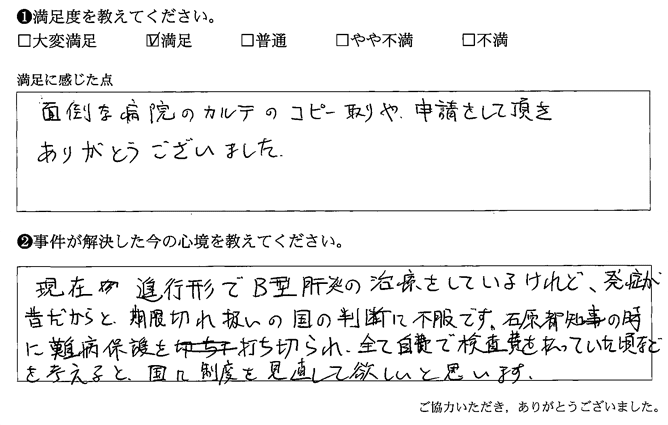 ❶満足度を教えてください。
□大変満足 ☑満足 □普通 □やや不満 □不満
満足に感じた点
面倒な病院のカルテのコピー取りや、申請をして頂き
ありがとうございました。
❷事件が解決した今の心境を教えてください。
現在も進行形でB型肝炎の治療をしているけれど、発症が
昔だからと期限切れ扱いの国の判断に不服です。石原都知事の時
に難病保護を打ち切られ、全て自費で検査費を払っていた頃など
を考えると、国に制度を見直して欲しいと思います。
ご協力いただき、ありがとうございました。